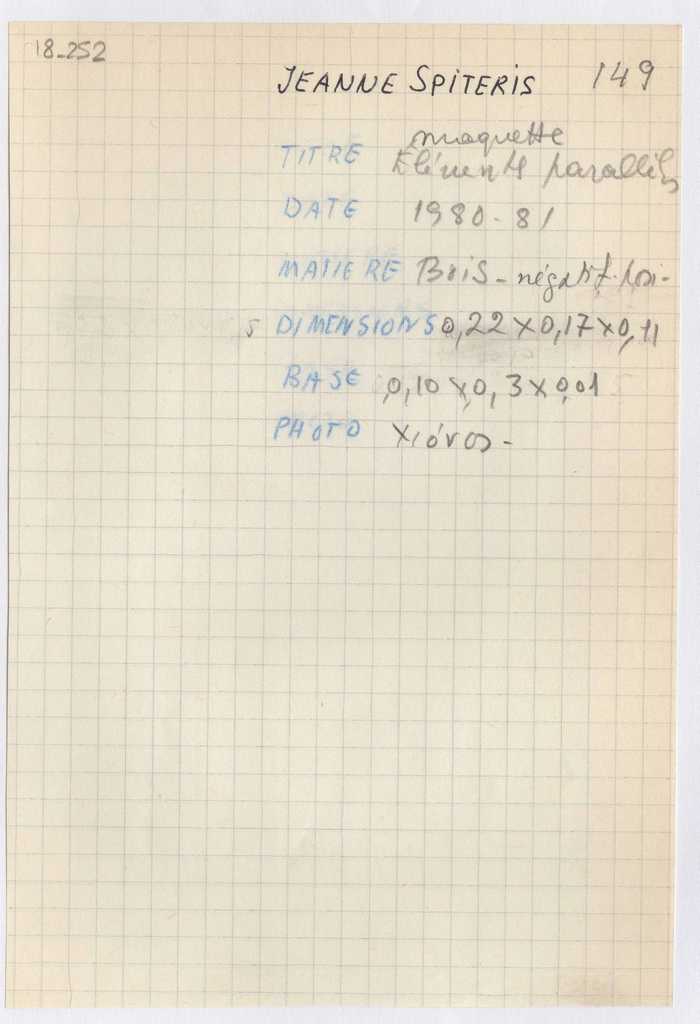 18_252
JEANNE SPITERIS 149
maquette
TITRE Eléments parallèles
DATE 1980-81
MATIERE Bois - négatif-posi-
5 DIMENSIONS 0,22 x 0,17 x 0,11
BASE 0,10 x 0,3 x 0,01
PHOTO Χιόνος -